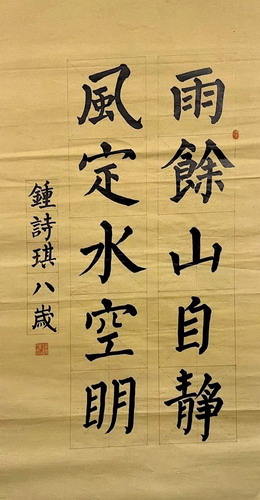 雨餘山自靜
風定水空明
鍾詩琪八歲